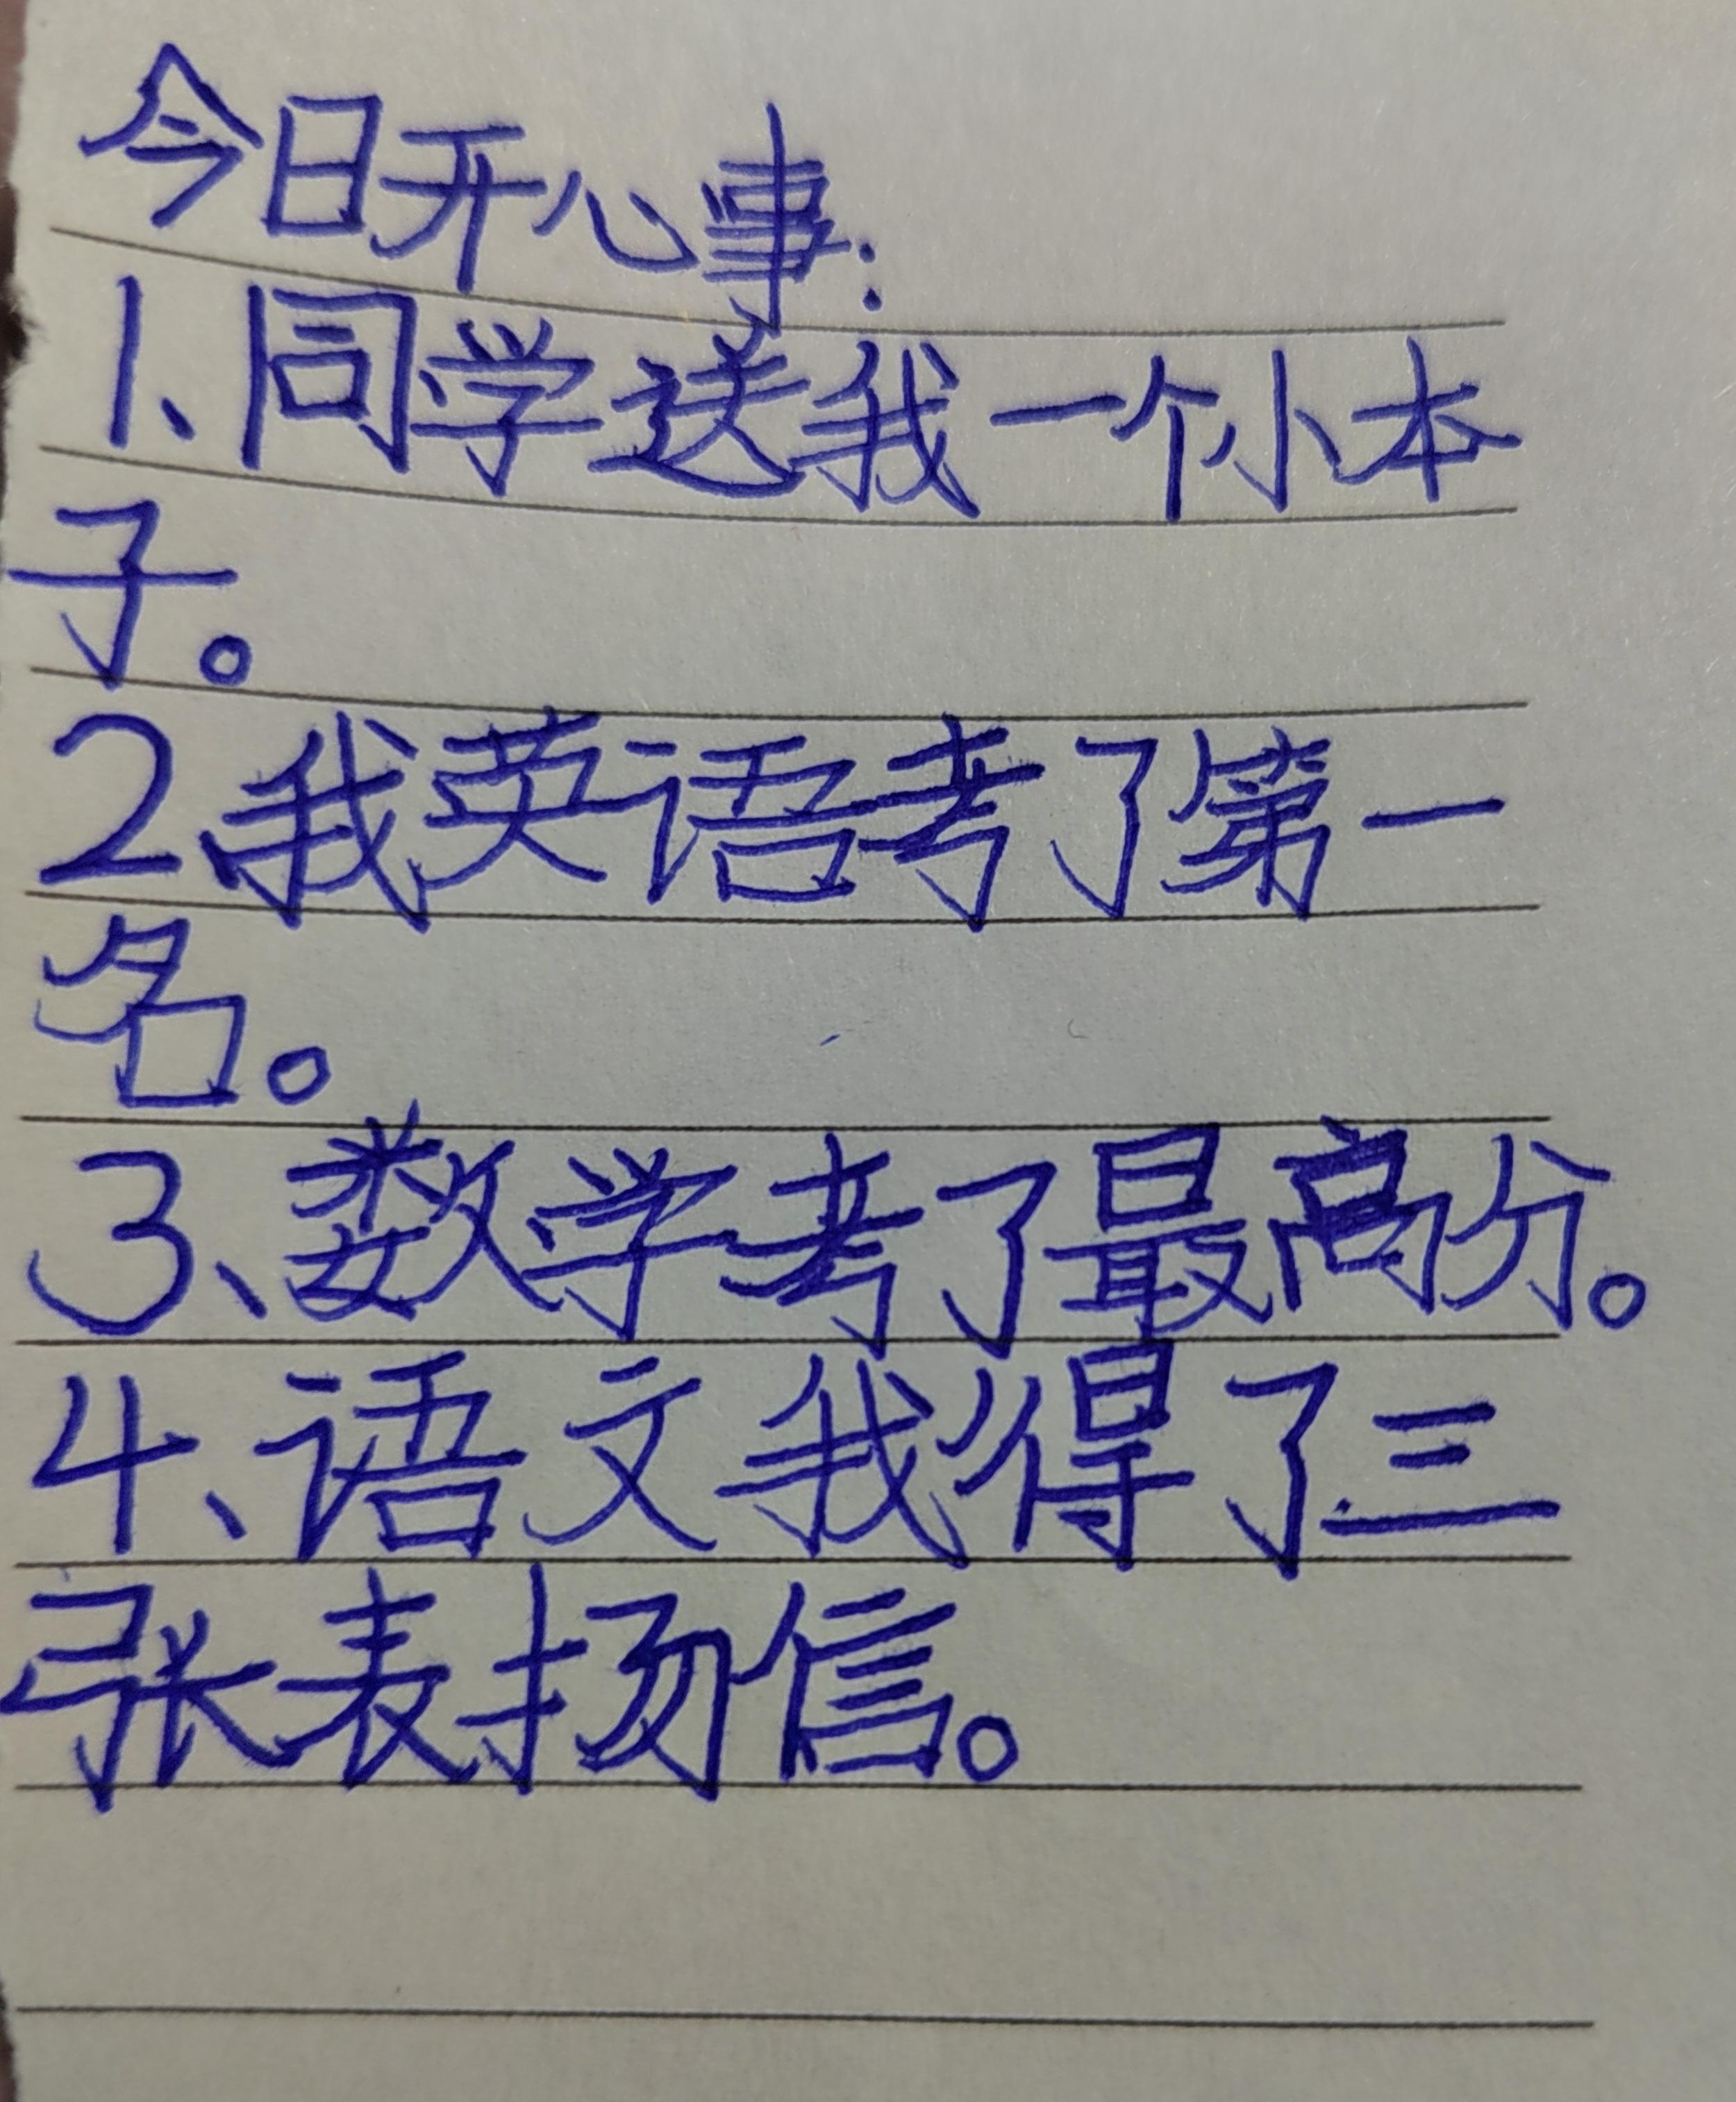 今日开心事：
1、同学送我一个小本
子。
2、我英语考了第一
名。
3、数学考了最高分。
4、语文我得了三
张表扬信。